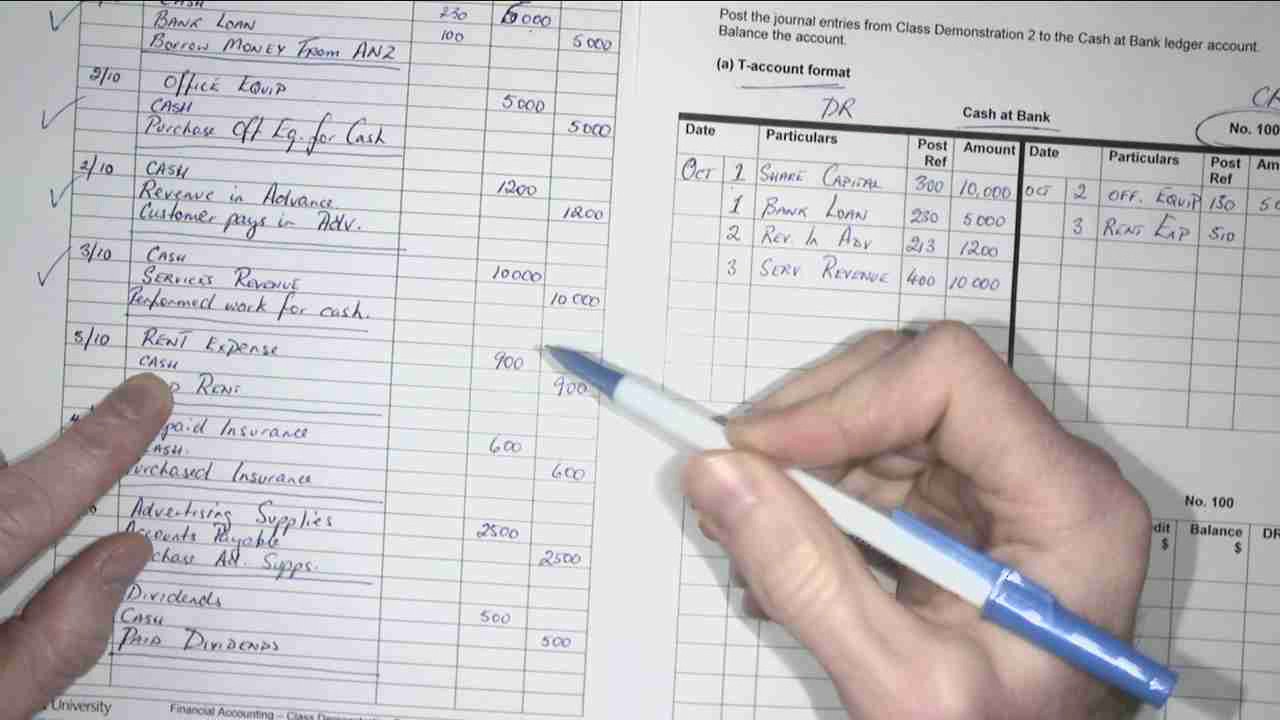 CASH
BANK LOAN 230 5000
BORROW MONEY FROM ANZ 100 5000
2/10 OFFICE EQUIP
CASH 5000
Purchase Off Eq. for Cash 5000
2/10 CASH
Revenue in Advance 1200
Customer pays in Adv. 1200
3/10 CASH
SERVICES REVENUE 10000
Performed work for cash. 10000
3/10 RENT Expense
CASH 900
RENT 900
paid Insurance
CASH. 600
urchased Insurance 600
Advertising Supplies
ccounts Payable 2500
chase Ad. Supps. 2500
Dividends
CASH 500
PAID DIVIDENDS 500
University
Financial Accounting – Class
Post the journal entries from Class Demonstration 2 to the Cash at Bank ledger account.
Balance the account.
(a) T-account format
DR Cash at Bank
No. 100
Date Particulars Post Ref Amount Date Particulars Post Ref Am
OCT 1 SHARE CAPITAL 300 10,000 OCT 2 OFF. EQUIP 150 50
1 BANK LOAN 230 5000 3 RENT EXP 510
2 REV IN ADV 213 1200
3 SERV REVENUE 400 10 000
No. 100
dit $ Balance $ DR